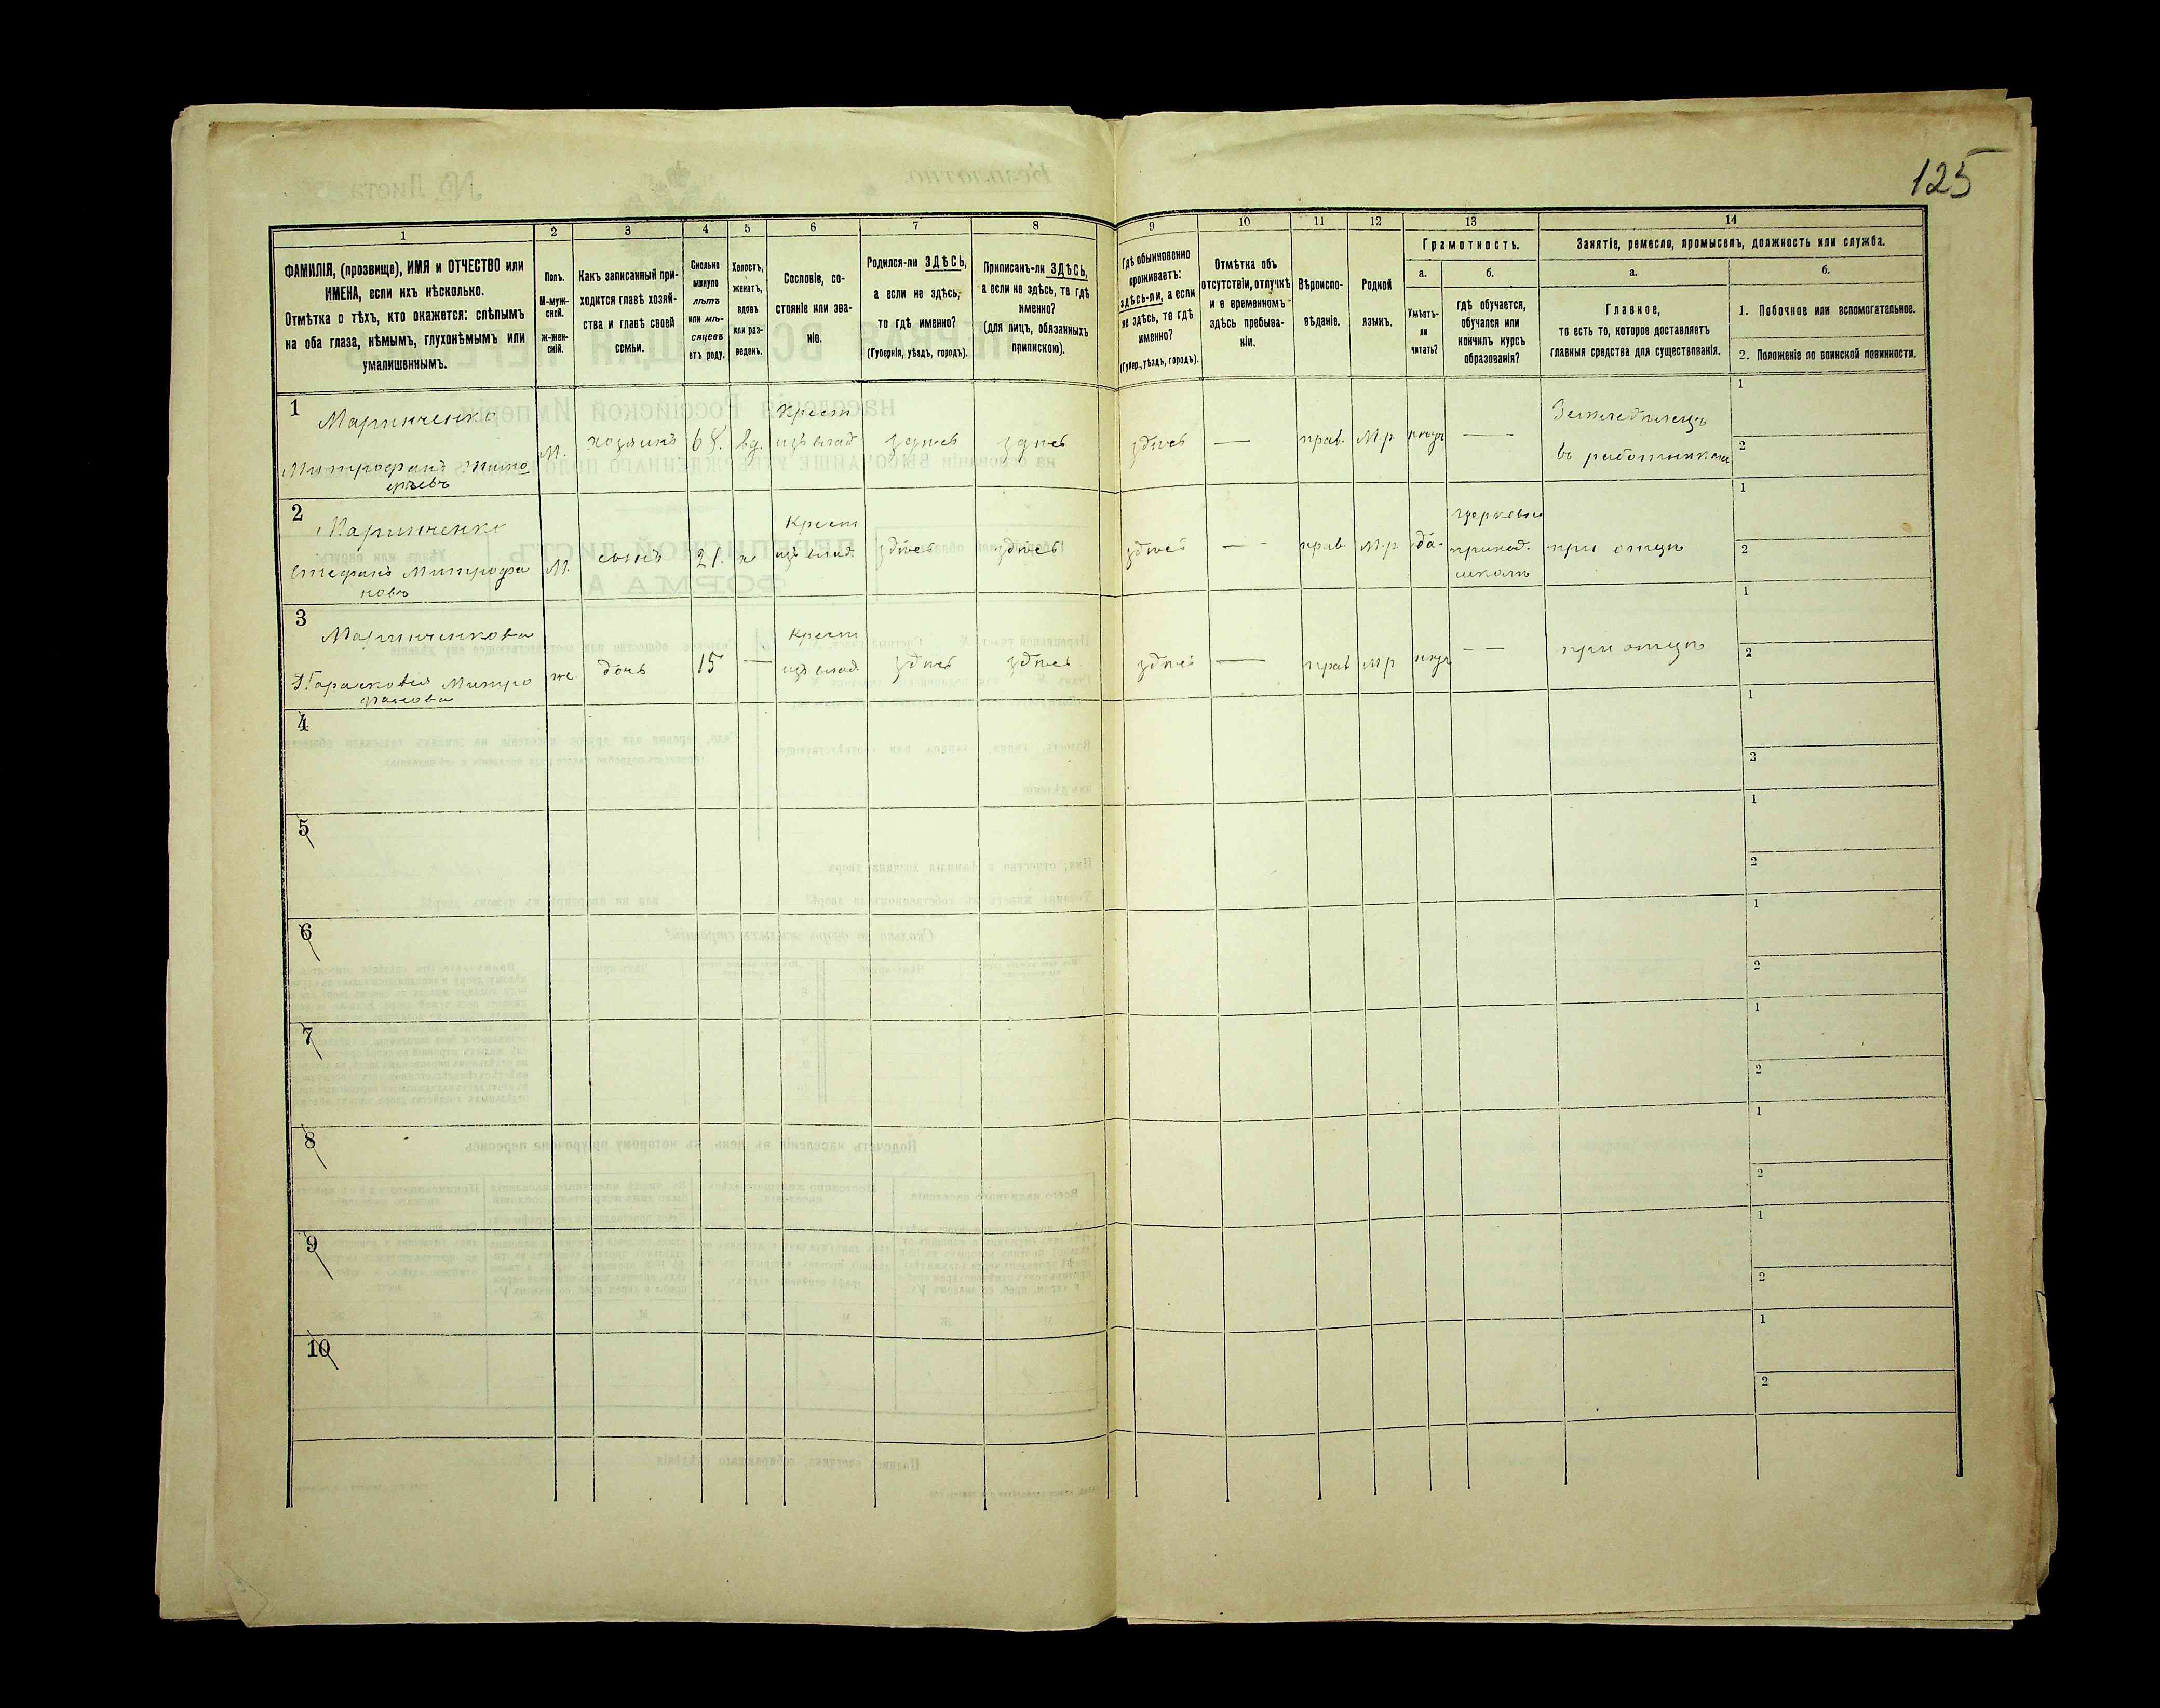 125
1
2
3
4
5
6
7
8
9
10
11
12
13
14
ФАМИЛІЯ, (прозвище), ИМЯ и ОТЧЕСТВО или
ИМЕНА, если ихъ нѣсколько.
Отмѣтка о тѣхъ, кто окажется: слѣпымъ
на оба глаза, нѣмымъ, глухонѣмымъ или
умалишеннымъ.
Полъ.
М-муж-
ской.
ж-жен-
скій.
Какъ записанный при-
ходится главѣ хозяй-
ства и главѣ своей
семьи.
Сколько
минуло
лѣтъ
или мѣ-
сяцевъ
отъ роду.
Холостъ,
женатъ,
вдовъ
или раз-
веденъ.
Сословіе, со-
стояніе или зва-
ніе.
Родился-ли ЗДѢСЬ,
а если не здѣсь,
то гдѣ именно?
(Губернія, уѣздъ, городъ).
Приписанъ-ли ЗДѢСЬ,
а если не здѣсь, то гдѣ
именно?
(для лицъ, обязанныхъ
припискою).
Гдѣ обыкновенно
проживаетъ:
здѣсь-ли, а если
не здѣсь, то гдѣ
именно?
(Губер., уѣздъ, городъ).
Отмѣтка объ
отсутствіи, отлучкѣ
и о временномъ
здѣсь пребыва-
ніи.
Вѣроиспо-
вѣданіе.
Родной
языкъ.
Грамотность.
а.
Умѣетъ-
ли
читать?
б.
гдѣ обучается,
обучался или
кончилъ курсъ
образованія?
Занятіе, ремесло, промыселъ, должность или служба.
а.
Главное,
то есть то, которое доставляетъ
главныя средства для существованія.
б.
1. Побочное или вспомогательное.
2. Положеніе по воинской повинности.
1
Маринченко
Митрофанъ
М. хозяинъ 68. вд.
Крест
изъ влад
здѣсь здѣсь здѣсь — прав. М.р. —
Земледѣлецъ
въ работникахъ
1
2
2
Маринченко
Стефанъ Митрофа
новъ
М. сынъ 21. х
Крест
изъ влад.
здѣсь здѣсь здѣсь — прав. М.р. да.
церковно
приход.
школѣ
при отцѣ
1
2
3
Маринченкова
Парасковія Митро
фанова
ж. дочь 15 —
Крест
изъ влад.
здѣсь здѣсь здѣсь — прав М.р — при отцѣ
1
2
4
1
2
5
1
2
6
1
2
7
1
2
8
1
2
9
1
2
10
1
2